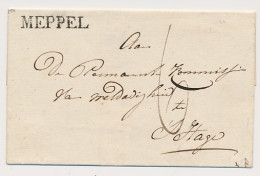 MEPPEL
Aan
De Permanente Kommissie
van weldadigheid
te
s'Hage